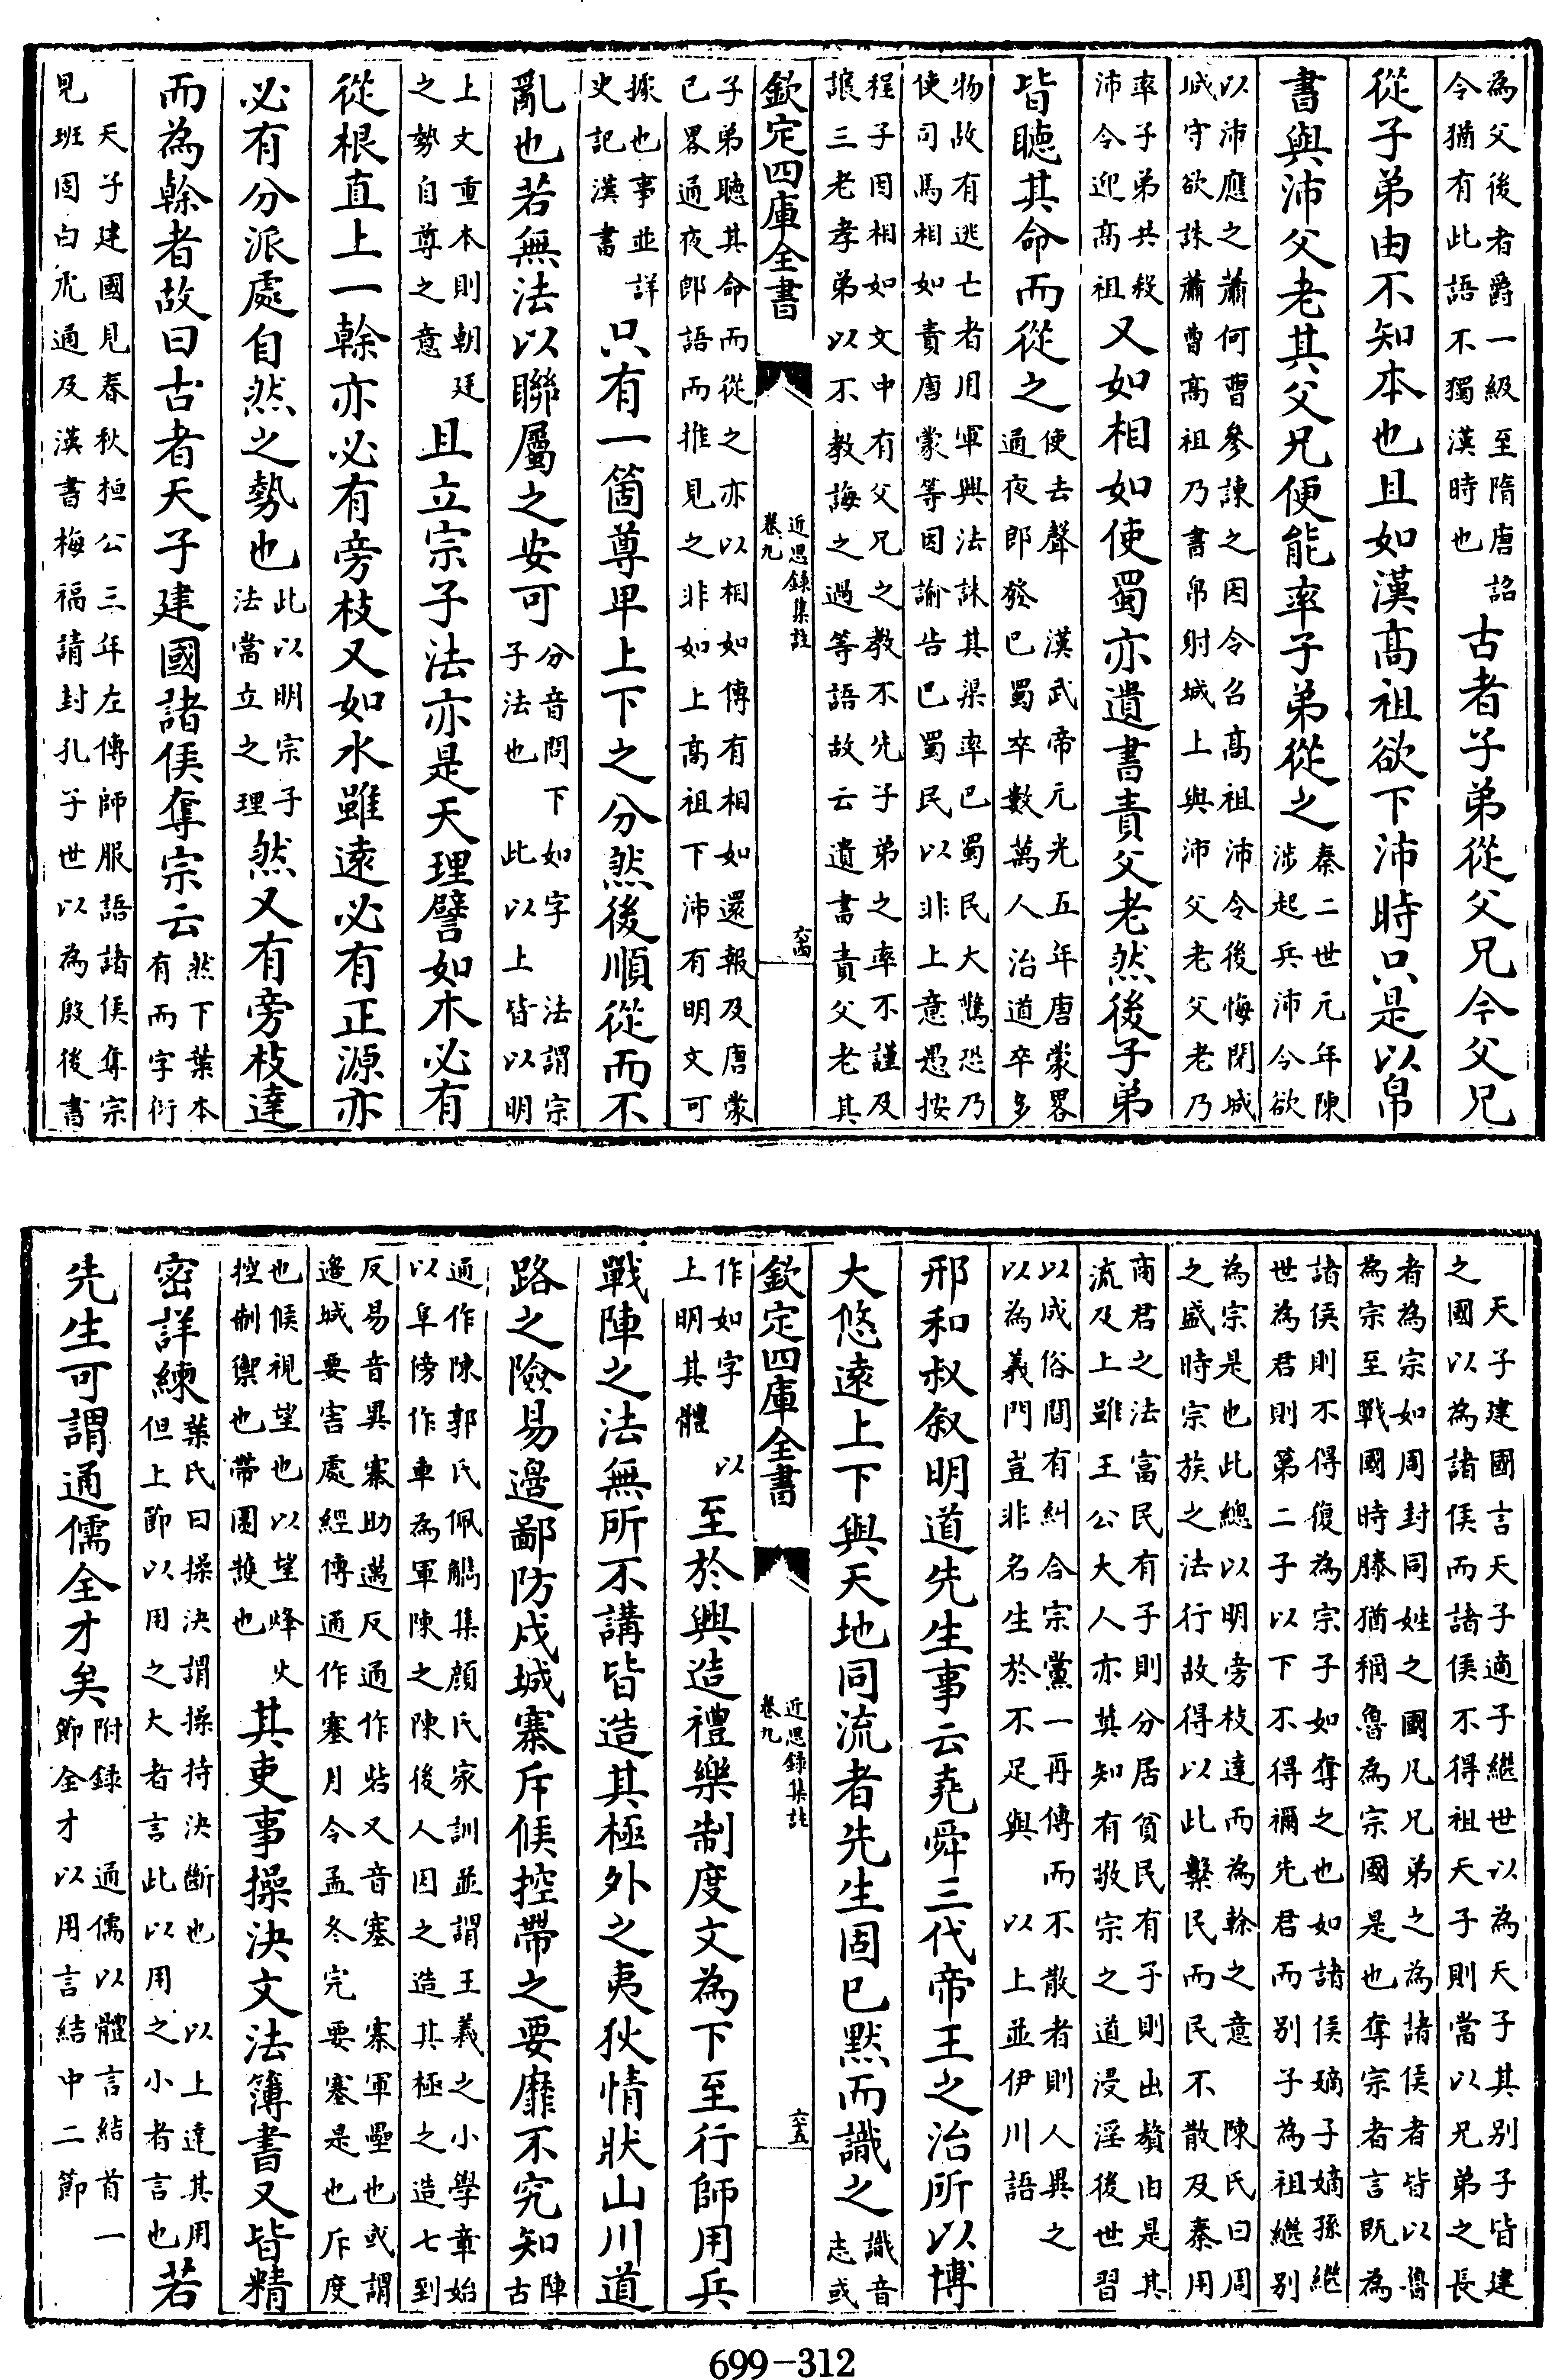 為父後者爵一級至隋唐詔
令猶有此語不獨漢時也
古者子弟從父兄今父兄
從子弟由不知本也且如漢高祖欲下沛時只是以帛
書與沛父老其父兄便能率子弟從之
秦二世元年陳
涉起兵沛令欲
以沛應之蕭何曹參諫之因令召高祖沛令後悔閉城
城守欲誅蕭曹高祖乃書帛射城上與沛父老父老乃
率子弟共殺
沛令迎高祖
又如相如使蜀亦遺書責父老然後子弟
皆聽其命而從之
使去聲 漢武帝元光五年唐蒙畧
通夜郎發巴蜀卒數萬人治道卒多
物故有逃亡者用軍興法誅其渠率巴蜀民大驚恐乃
使司馬相如責唐蒙等因諭告巴蜀民以非上意愚按
程子因相如文中有父兄之教不先子弟之率不謹及
讓三老孝弟以不教誨之過等語故云遺書責父老其
欽定四庫全書
近思錄集註
卷九
六四
子弟聽其命而從之亦以相如傳有相如還報及唐蒙
已畧通夜郎語而推見之非如上高祖下沛有明文可
據也事並詳
史記漢書
只有一箇尊卑上下之分然後順從而不
亂也若無法以聯屬之安可
分音問下如字 法謂宗
子法也 此以上皆以明
上文重本則朝廷
之勢自尊之意
且立宗子法亦是天理譬如木必有
從根直上一榦亦必有旁枝又如水雖遠必有正源亦
必有分派處自然之勢也
此以明宗子
法當立之理
然又有旁枝達
而為榦者故曰古者天子建國諸侯奪宗云
然下葉本
有而字衍
天子建國見春秋桓公三年左傳師服語諸侯奪宗
見班固白虎通及漢書梅福請封孔子世以為殷後書
天子建國言天子適子繼世以為天子其别子皆建
之國以為諸侯而諸侯不得祖天子則當以兄弟之長
者為宗如周封同姓之國凡兄弟之為諸侯者皆以魯
為宗至戰國時滕猶稱魯為宗國是也奪宗者言既為
諸侯則不得復為宗子如奪之也如諸侯嫡子嫡孫繼
世為君則第二子以下不得禰先君而别子為祖繼别
為宗是也此總以明旁枝達而為榦之意 陳氏曰周
之盛時宗族之法行故得以此繫民而民不散及秦用
商君之法富民有子則分居貧民有子則出贅由是其
流及上雖王公大人亦莫知有敬宗之道浸淫後世習
以成俗間有糾合宗黨一再傳而不散者則人異之
以為義門豈非名生於不足與 以上並伊川語
邢和叔叙明道先生事云堯舜三代帝王之治所以博
大悠遠上下與天地同流者先生固已默而識之
識音
志或
欽定四庫全書
近思錄集註
卷九
六五
作如字 以
上明其體
至於興造禮樂制度文為下至行師用兵
戰陣之法無所不講皆造其極外之夷狄情狀山川道
路之險易邊鄙防戍城寨斥候控帶之要靡不究知
陣
古
通作陳郭氏佩觿集顔氏家訓並謂王羲之小學章始
以阜傍作車為軍陳之陳後人因之造其極之造七到
反易音異寨助邁反通作砦又音塞 寨軍壘也或謂
邉城要害處經傳通作塞月令孟冬完要塞是也斥度
也候視望也以望烽火
控制禦也帶圍䕶也
其吏事操決文法簿書又皆精
密詳練
葉氏曰操決謂操持決斷也 以上達其用
但上節以用之大者言此以用之小者言也
若
先生可謂通儒全才矣
附録 通儒以體言結首一
節全才以用言結中二節
699-312